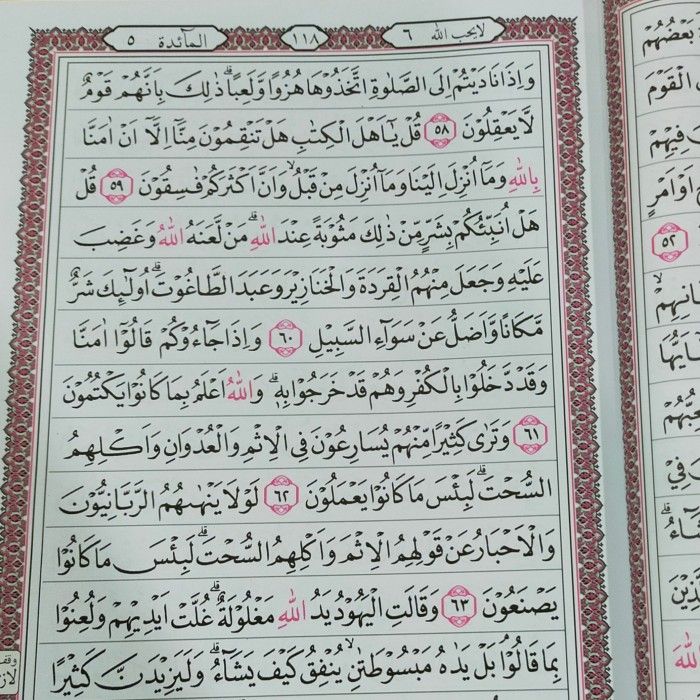 لايحب الله ٦ ١١٨ المآئدة ٥
وَاِذَا نَادَيْتُمْ اِلَى الصَّلٰوةِ اتَّخَذُوْهَا هُزُوًا وَّلَعِبًا ۗ ذٰلِكَ بِاَنَّهُمْ قَوْمٌ
لَّا يَعْقِلُوْنَ ٥٨ قُلْ يٰٓاَهْلَ الْكِتٰبِ هَلْ تَنْقِمُوْنَ مِنَّآ اِلَّآ اَنْ اٰمَنَّا
بِاللّٰهِ وَمَآ اُنْزِلَ اِلَيْنَا وَمَآ اُنْزِلَ مِنْ قَبْلُۙ وَاَنَّ اَكْثَرَكُمْ فٰسِقُوْنَ ٥٩ قُلْ
هَلْ اُنَبِّئُكُمْ بِشَرٍّ مِّنْ ذٰلِكَ مَثُوْبَةً عِنْدَ اللّٰهِ ۗ مَنْ لَّعَنَهُ اللّٰهُ وَغَضِبَ
عَلَيْهِ وَجَعَلَ مِنْهُمُ الْقِرَدَةَ وَالْخَنَازِيْرَ وَعَبَدَ الطَّاغُوْتَۗ اُولٰۤئِكَ شَرٌّ
مَّكَانًا وَّاَضَلُّ عَنْ سَوَاۤءِ السَّبِيْلِ ٦٠ وَاِذَا جَاۤءُوْكُمْ قَالُوْٓا اٰمَنَّا
وَقَدْ دَّخَلُوْا بِالْكُفْرِ وَهُمْ قَدْ خَرَجُوْا بِهٖۗ وَاللّٰهُ اَعْلَمُ بِمَا كَانُوْا يَكْتُمُوْنَ
٦١ وَتَرٰى كَثِيْرًا مِّنْهُمْ يُسَارِعُوْنَ فِى الْاِثْمِ وَالْعُدْوَانِ وَاَكْلِهِمُ
السُّحْتَۗ لَبِئْسَ مَا كَانُوْا يَعْمَلُوْنَ ٦٢ لَوْلَا يَنْهٰىهُمُ الرَّبَّانِيُّوْنَ
وَالْاَحْبَارُ عَنْ قَوْلِهِمُ الْاِثْمَ وَاَكْلِهِمُ السُّحْتَۗ لَبِئْسَ مَا كَانُوْا
يَصْنَعُوْنَ ٦٣ وَقَالَتِ الْيَهُوْدُ يَدُ اللّٰهِ مَغْلُوْلَةٌ ۗ غُلَّتْ اَيْدِيْهِمْ وَلُعِنُوْا
بِمَا قَالُوْا بَلْ يَدٰهُ مَبْسُوْطَتٰنِۙ يُنْفِقُ كَيْفَ يَشَاۤءُۗ وَلَيَزِيْدَنَّ كَثِيْرًا
بَعْضُهُمْ
الْقَوْمَ
فِيْهِمْ
اَوْ اَمْرٍ
٥٢